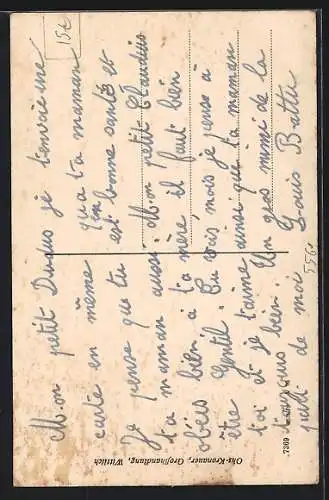 15€
Mon petit Dudus je t'envoie une
carte en même qu'a ta maman
Je pense que tu en est bonne santé et
ta maman aussi. Mon petit Claudius
obéis bien à ta mère il faut bien
être Gentil. Tu vois mais je pense à
toi et je t'aime ainsi que ta maman
toujours bien. Un gros mimi de la
part de moi Louis Battu
Kronauer, Großhandlung, Wittlich
7369